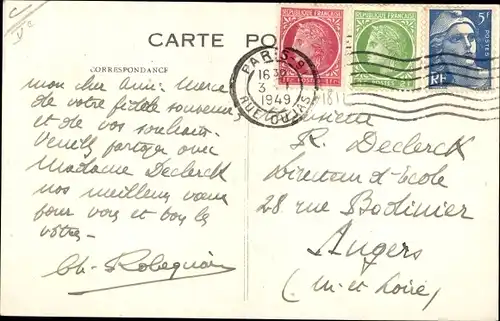 CARTE PO
CORRESPONDANCE
PARIS-9
16 30
3 - 1
1949
RUE
POSTES 5F
RF
mon cher ami. merci
de votre fidèle souvenir
et de vos souhaits.
Veuillez partager avec
Madame Declerck
nos meilleurs vœux
pour vous et tous les
vôtres.
Ch. Robequain
Monsieur
R. Declerck
Directeur d'École
28 rue Bodinier
Angers
(M. et Loire)